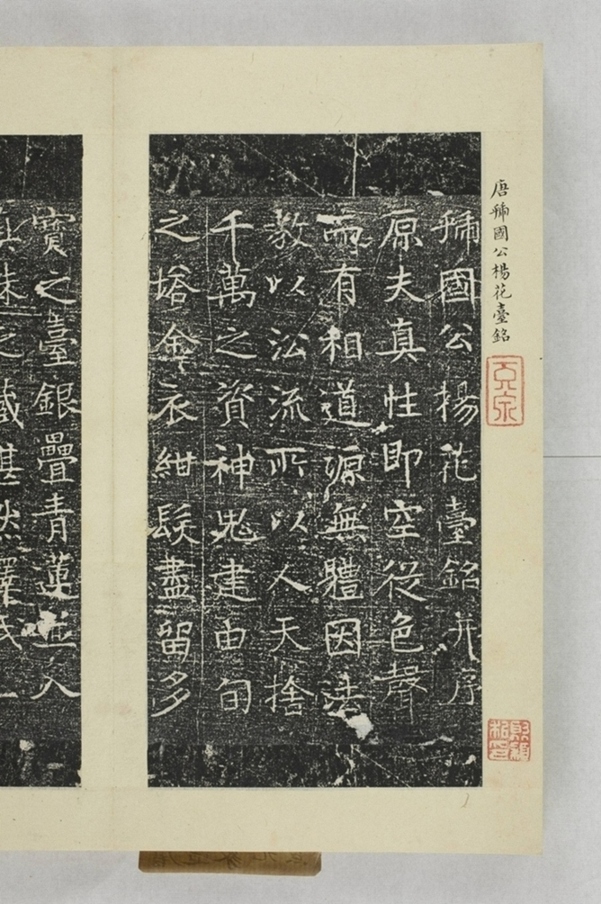 唐虢國公楊花臺銘
虢國公楊花臺銘并序
原夫真性即空從色聲
而有相道源無體因法
教以㳂流所以人天捨
千萬之資神鬼建由旬
之塔金衣紺髮盡留多
寶之臺銀疊青蓮並入
真珠之藏